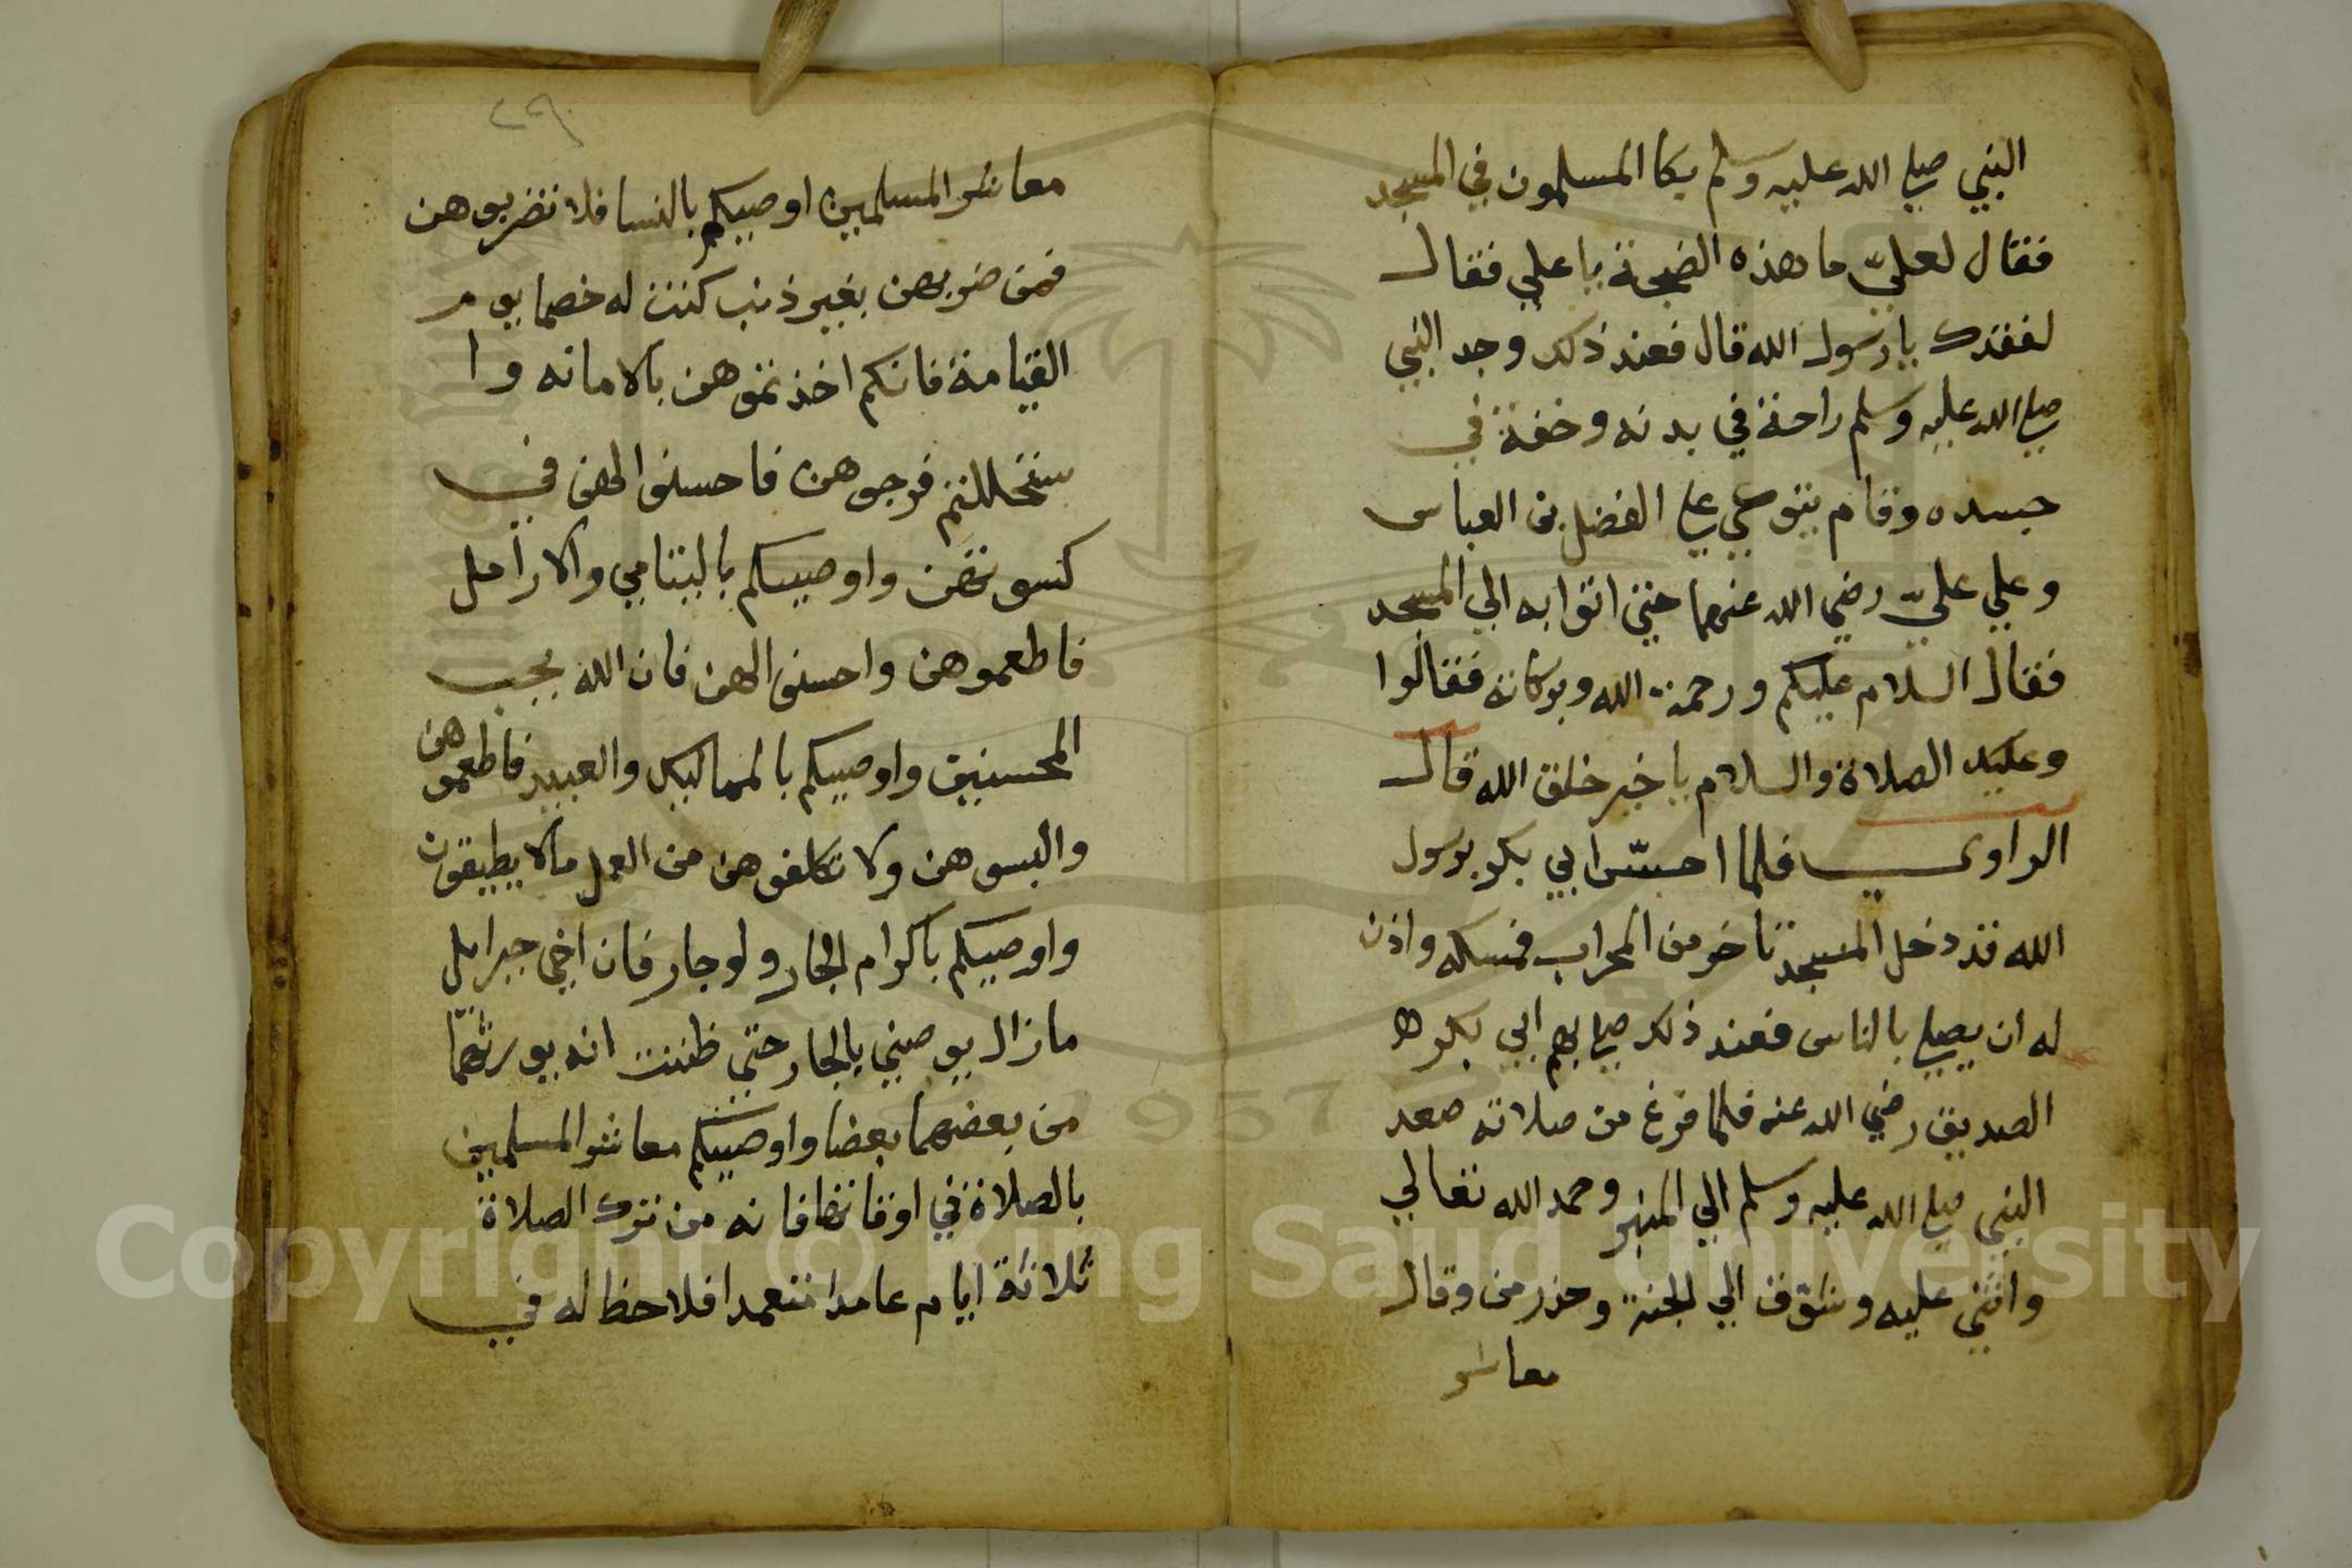 النبي صلي الله عليه وسلم بكا المسلمون في المسجد
فقال لعليّ ما هذه الضجة يا علي فقال
لفقدك يا رسول الله قال فعند ذلك وجد النبي
صلي الله عليه وسلم راحة في بدنه وخفة في
جسده وقام يتوكي علي الفضل بن العباس
وعلي عليّ رضي الله عنهما حتي اتوا به الي المسجد
فقال السلام عليكم ورحمة الله وبركاته فقالوا
وعليك الصلاة والسلام يا خير خلق الله قال
الراوي فلما احسّ ابي بكر برسول
الله قد دخل المسجد تاخر من المحراب فمسكه واذن
له ان يصلي بالناس فعند ذلك صلي بهم ابي بكر
الصديق رضي الله عنه فلما فرغ من صلاته صعد
النبي صلي الله عليه وسلم الي المنبر وحمد الله تعالي
واثني عليه وشوّق الي الجنة وحذر من وقال
معاشر
٢٩
معاشر المسلمين اوصيكم بالنسا فلا تضربوهن
فمن ضربهن بغير ذنب كنت له خصما يوم
القيامة فانكم اخذتموهن بالامانه وا
ستحللتم فروجهن فاحسنوا الهن في
كسوتهن واوصيكم باليتامي والارامل
فاطعموهن واحسنوا الهن فان الله يحب
المحسنين واوصيكم بالمماليك والعبيد فاطعموهن
والبسوهن ولا تكلفوهن من العمل مالا يطيقون
واوصيكم باكرام الجار ولو جار فان اخي جبرايل
مازال يوصيني بالجار حتي ظننت انه يورثهما
من بعضهما بعضا واوصيكم معاشر المسلمين
بالصلاة في اوقاتها فانه من ترك الصلاة
ثلاثة ايام عامدا متعمدا فلا حظ له في
Copyright © King Saud University
1957